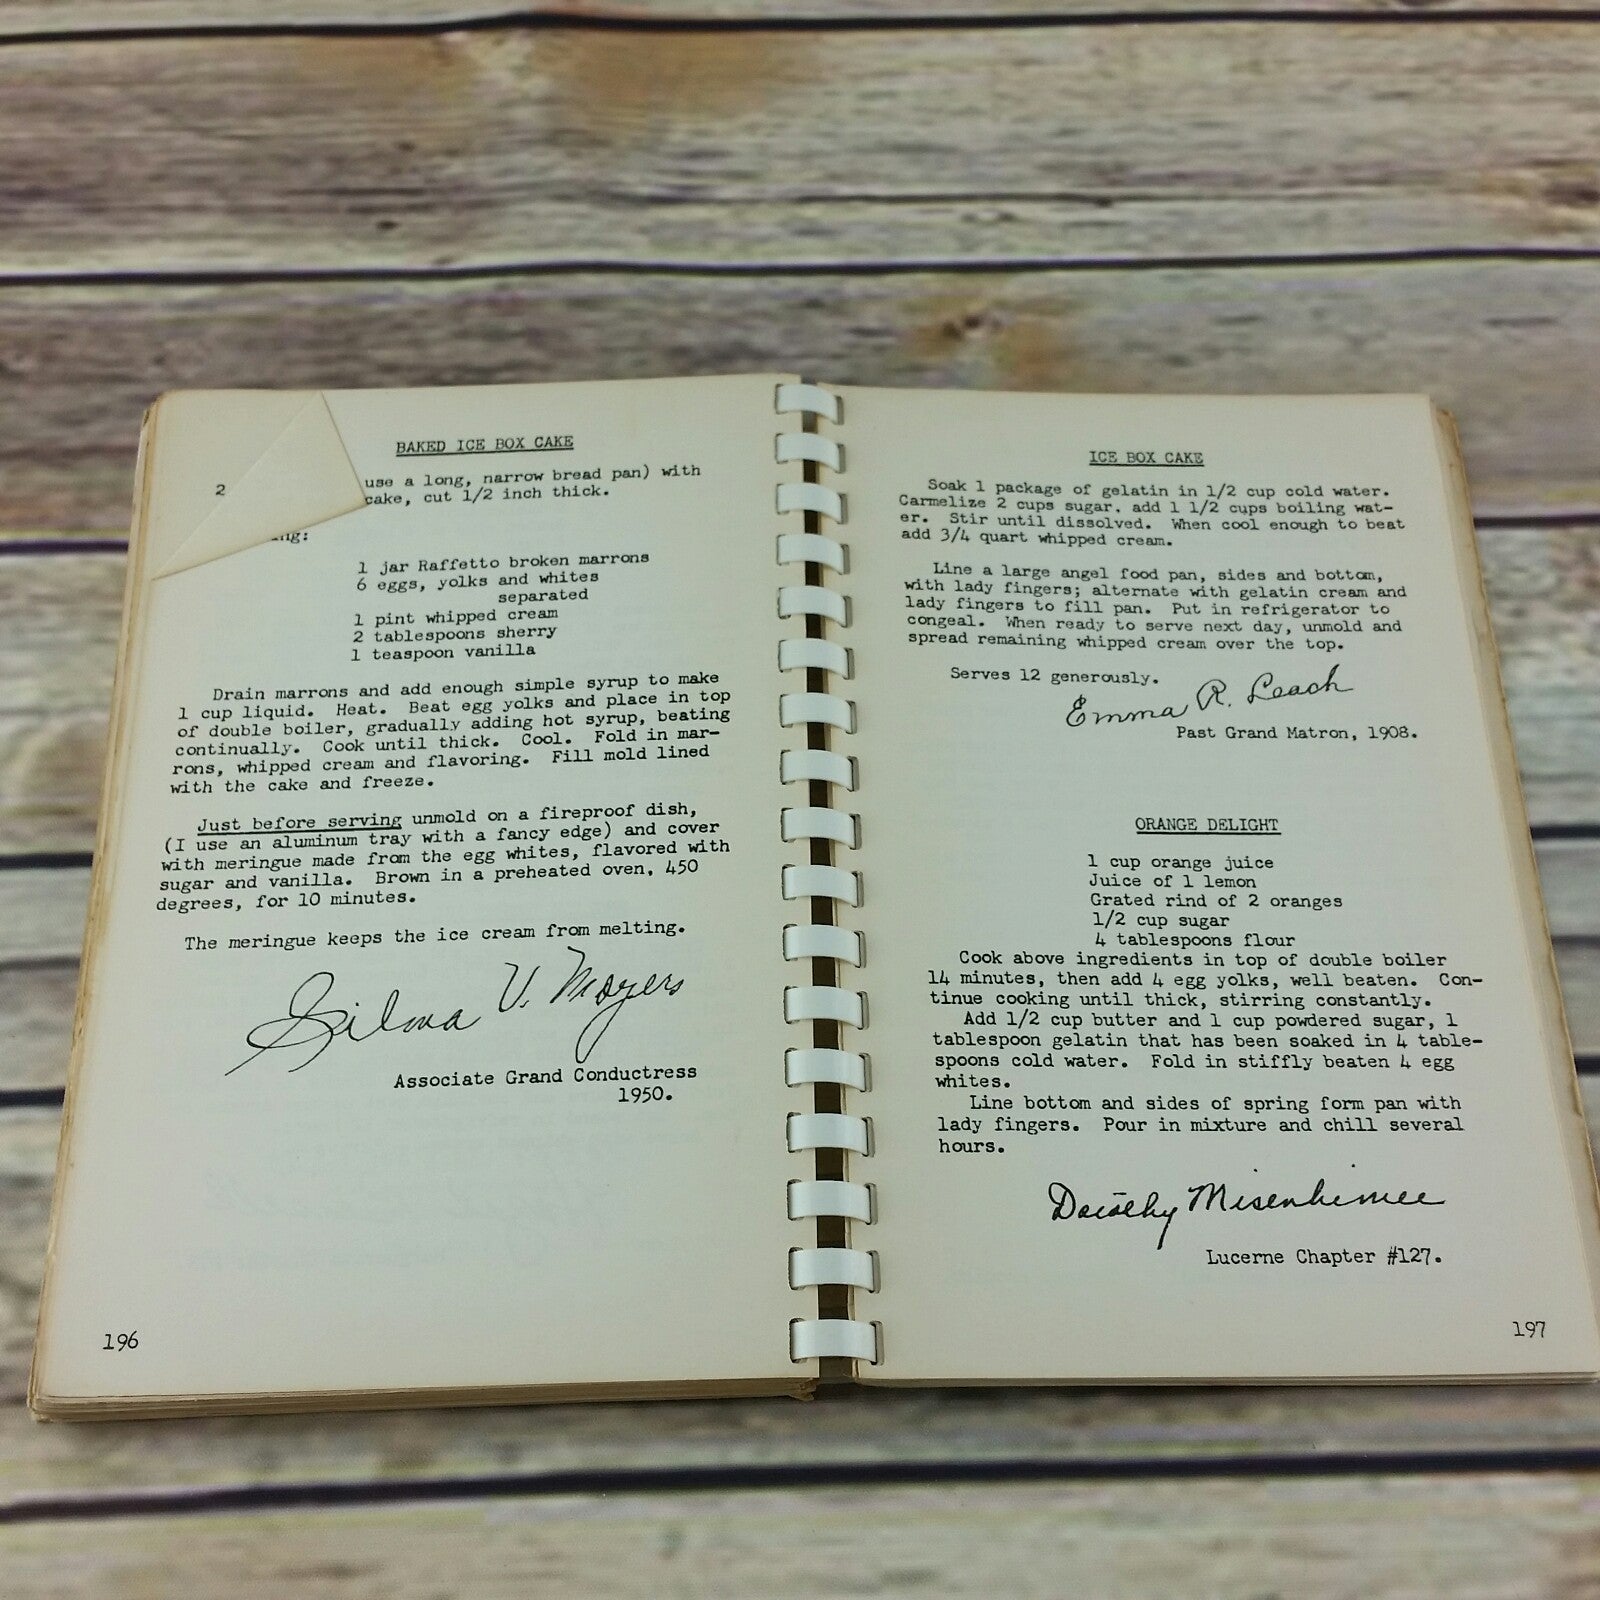 BAKED ICE BOX CAKE
use a long, narrow bread pan) with
2 cake, cut 1/2 inch thick.
ing:
1 jar Raffetto broken marrons
6 eggs, yolks and whites
separated
1 pint whipped cream
2 tablespoons sherry
1 teaspoon vanilla
Drain marrons and add enough simple syrup to make
1 cup liquid. Heat. Beat egg yolks and place in top
of double boiler, gradually adding hot syrup, beating
continually. Cook until thick. Cool. Fold in mar-
rons, whipped cream and flavoring. Fill mold lined
with the cake and freeze.
Just before serving unmold on a fireproof dish,
(I use an aluminum tray with a fancy edge) and cover
with meringue made from the egg whites, flavored with
sugar and vanilla. Brown in a preheated oven, 450
degrees, for 10 minutes.
The meringue keeps the ice cream from melting.
V. Moyers
Associate Grand Conductress
1950.
196
ICE BOX CAKE
Soak 1 package of gelatin in 1/2 cup cold water.
Carmelize 2 cups sugar, add 1 1/2 cups boiling wat-
er. Stir until dissolved. When cool enough to beat
add 3/4 quart whipped cream.
Line a large angel food pan, sides and bottom,
with lady fingers; alternate with gelatin cream and
lady fingers to fill pan. Put in refrigerator to
congeal. When ready to serve next day, unmold and
spread remaining whipped cream over the top.
Serves 12 generously.
Emma R. Leach
Past Grand Matron, 1908.
ORANGE DELIGHT
1 cup orange juice
Juice of 1 lemon
Grated rind of 2 oranges
1/2 cup sugar
4 tablespoons flour
Cook above ingredients in top of double boiler
14 minutes, then add 4 egg yolks, well beaten. Con-
tinue cooking until thick, stirring constantly.
Add 1/2 cup butter and 1 cup powdered sugar, 1
tablespoon gelatin that has been soaked in 4 table-
spoons cold water. Fold in stiffly beaten 4 egg
whites.
Line bottom and sides of spring form pan with
lady fingers. Pour in mixture and chill several
hours.
Dorothy Misenhimer
Lucerne Chapter #127.
197